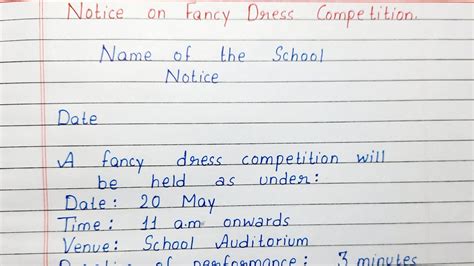 Notice on Fancy Dress Competition.
Name of the School
Notice
Date
A fancy dress competition will
be held as under:
Date: 20 May
Time: 11 a.m onwards
Venue: School Auditorium
Duration of performance: 3 minutes